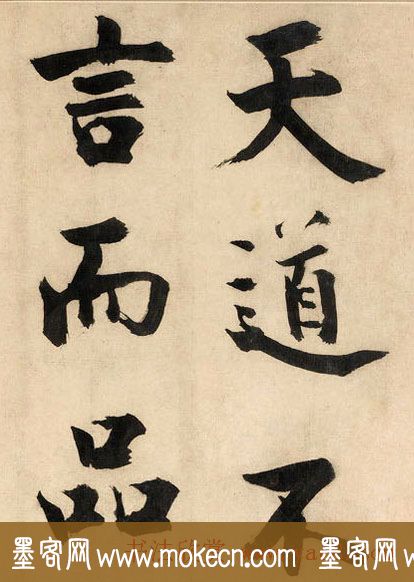 天道不
言而品
墨客网 www.mokecn.com 墨客网